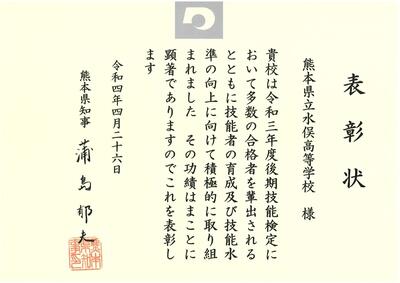 表彰状
熊本県立水俣高等学校 様
貴校は令和三年度後期技能検定に
おいて多数の合格者を輩出される
とともに技能者の育成及び技能水
準の向上に向けて積極的に取り組
まれました その功績はまことに
顕著でありますのでこれを表彰し
ます
令和四年四月二十六日
熊本県知事 蒲島郁夫